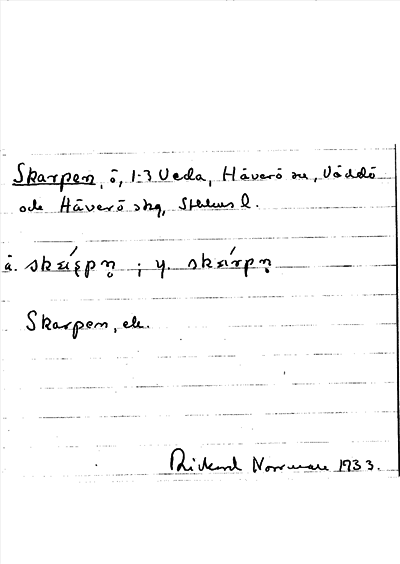 Skarpen, ö, 1:3 Veda, Häverö sn, Väddö
och Häverö skg, Sthlms l.
å. skεíȿpn̥ ; y. skεírpn̥
Skarpen, ek.
Rickard Norrman 1933.